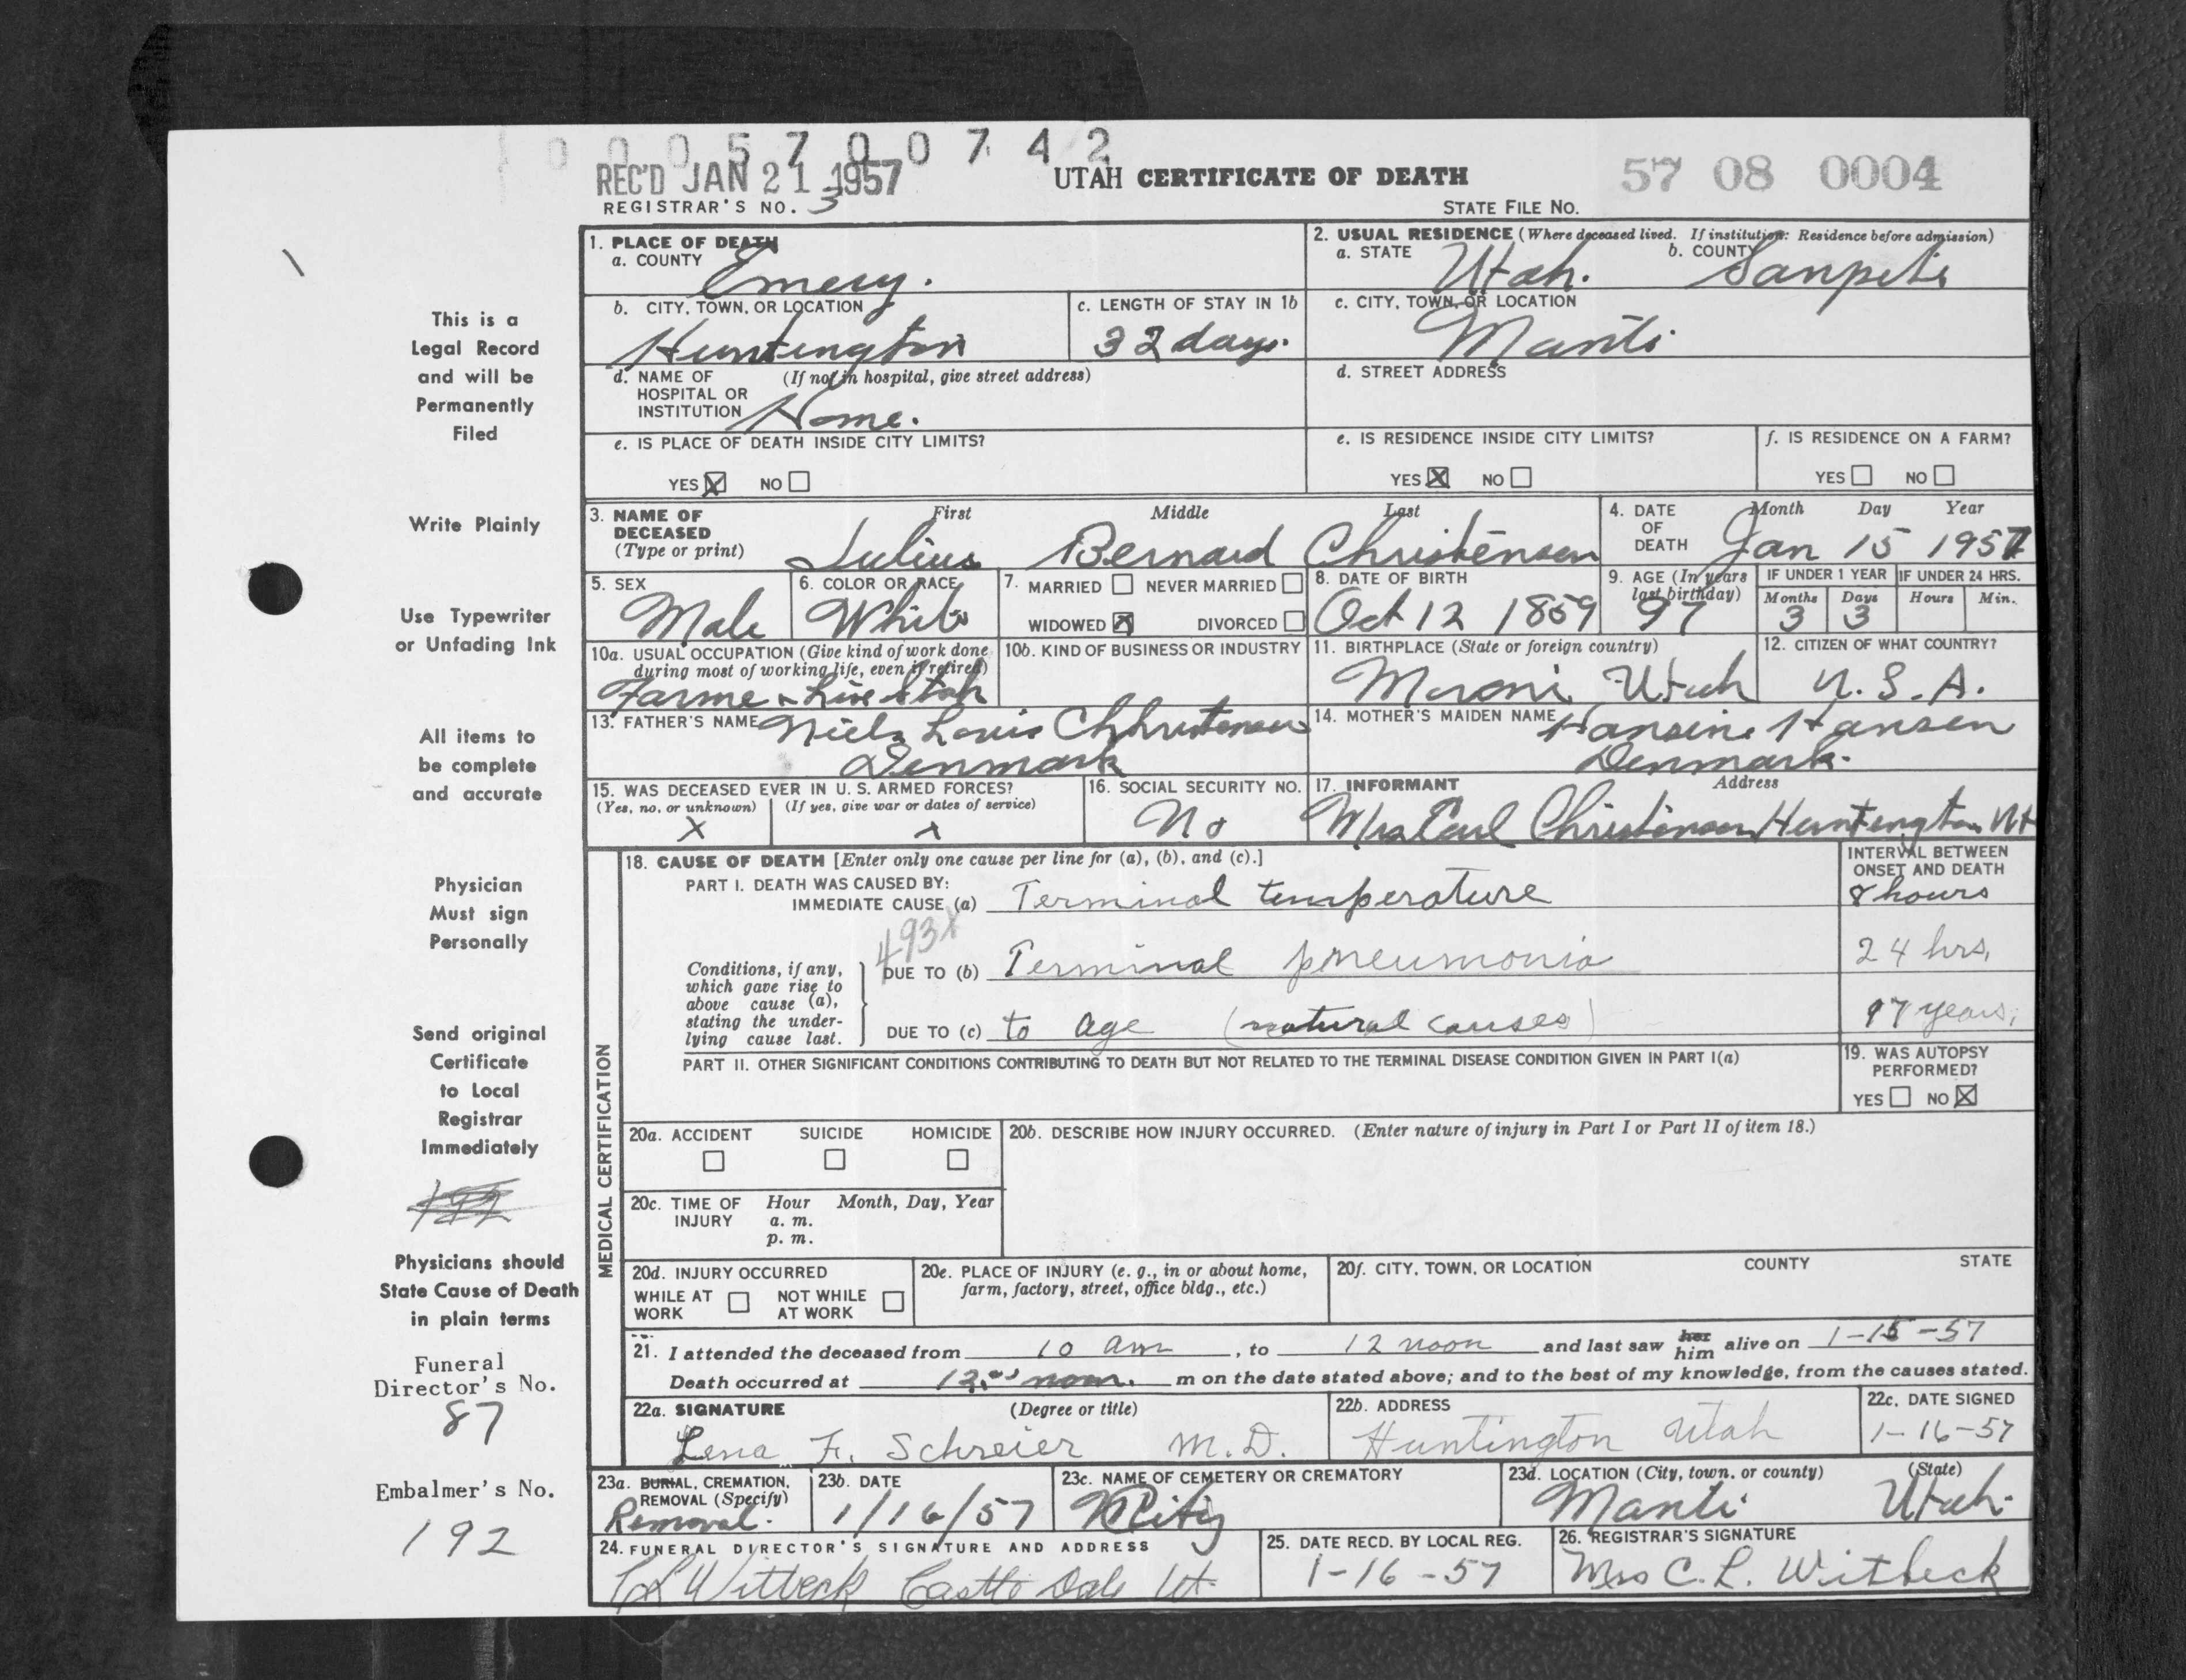 0005700742
REC'D JAN 21 1957
UTAH CERTIFICATE OF DEATH
57 08 0004
REGISTRAR'S NO. 3
STATE FILE No.
This is a
Legal Record
and will be
Permanently
Filed
Write Plainly
Use Typewriter
or Unfading Ink
All items to
be complete
and accurate
Physician
Must sign
Personally
Send original
Certificate
to Local
Registrar
Immediately
Physicians should
State Cause of Death
in plain terms
Funeral
Director's No.
87
Embalmer's No.
192
1. PLACE OF DEATH
a. COUNTY Emery.
2. USUAL RESIDENCE (Where deceased lived. If institution: Residence before admission)
a. STATE Utah. b. COUNTY Sanpete
b. CITY, TOWN, OR LOCATION
Huntington
c. LENGTH OF STAY IN 1b
32 days.
c. CITY, TOWN, OR LOCATION
Manti
d. NAME OF (If not in hospital, give street address)
HOSPITAL OR
INSTITUTION Home.
d. STREET ADDRESS
e. IS PLACE OF DEATH INSIDE CITY LIMITS?
YES X NO
e. IS RESIDENCE INSIDE CITY LIMITS?
YES X NO
f. IS RESIDENCE ON A FARM?
YES NO
3. NAME OF First Middle Last
DECEASED
(Type or print) Julius Bernard Christensen
4. DATE Month Day Year
OF
DEATH Jan 15 1957
5. SEX
Male
6. COLOR OR RACE
White
7. MARRIED NEVER MARRIED
WIDOWED X DIVORCED
8. DATE OF BIRTH
Oct 12 1859
9. AGE (In years
last birthday)
97
IF UNDER 1 YEAR IF UNDER 24 HRS.
Months Days Hours Min.
3 3
10a. USUAL OCCUPATION (Give kind of work done
during most of working life, even if retired)
Farme & Live Stoh
10b. KIND OF BUSINESS OR INDUSTRY
11. BIRTHPLACE (State or foreign country)
Moroni Utah
12. CITIZEN OF WHAT COUNTRY?
U.S.A.
13. FATHER'S NAME Niels Louis Chhristensen
Denmark
14. MOTHER'S MAIDEN NAME Hansine Hansen
Denmark.
15. WAS DECEASED EVER IN U. S. ARMED FORCES?
(Yes, no, or unknown) (If yes, give war or dates of service)
X X
16. SOCIAL SECURITY NO.
No
17. INFORMANT Address
Mrs Earl Christensen Huntington Ut
MEDICAL CERTIFICATION
18. CAUSE OF DEATH [Enter only one cause per line for (a), (b), and (c).]
INTERVAL BETWEEN
ONSET AND DEATH
PART I. DEATH WAS CAUSED BY:
IMMEDIATE CAUSE (a) Terminal temperature 8 hours
493X
Conditions, if any,
which gave rise to
above cause (a),
stating the under-
lying cause last.
DUE TO (b) Terminal pneumonia 24 hrs,
DUE TO (c) to age (natural causes) 97 years,
PART II. OTHER SIGNIFICANT CONDITIONS CONTRIBUTING TO DEATH BUT NOT RELATED TO THE TERMINAL DISEASE CONDITION GIVEN IN PART I(a)
19. WAS AUTOPSY
PERFORMED?
YES NO X
20a. ACCIDENT SUICIDE HOMICIDE
20b. DESCRIBE HOW INJURY OCCURRED. (Enter nature of injury in Part I or Part II of item 18.)
20c. TIME OF Hour Month, Day, Year
INJURY a. m.
p. m.
20d. INJURY OCCURRED
WHILE AT NOT WHILE
WORK AT WORK
20e. PLACE OF INJURY (e. g., in or about home,
farm, factory, street, office bldg., etc.)
20f. CITY, TOWN, OR LOCATION COUNTY STATE
21. I attended the deceased from 10 am, to 12 noon and last saw her him alive on 1-15-57
Death occurred at 12.00 noon. m on the date stated above; and to the best of my knowledge, from the causes stated.
22a. SIGNATURE (Degree or title)
Lena F. Schreier M.D.
22b. ADDRESS
Huntington Utah
22c. DATE SIGNED
1-16-57
23a. BURIAL, CREMATION,
REMOVAL (Specify)
Removal.
23b. DATE
1/16/57
23c. NAME OF CEMETERY OR CREMATORY
City
23d. LOCATION (City, town, or county) (State)
Manti Utah.
24. FUNERAL DIRECTOR'S SIGNATURE AND ADDRESS
CL Witbeck Castle Dale Ut.
25. DATE RECD. BY LOCAL REG.
1-16-57
26. REGISTRAR'S SIGNATURE
Mrs C. L. Witbeck